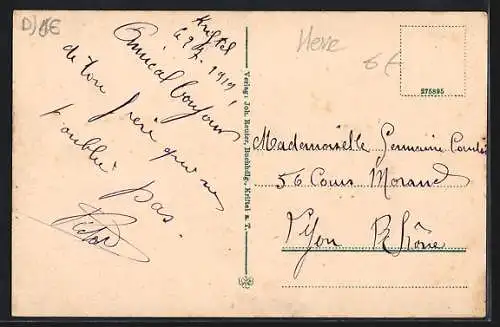 D/6E
Kriftel
1919
Amical bonjour
de ton frère qui ne
t'oublie pas.
Victor
Verlag: Joh. Reuter, Buchhdlg., Kriftel a. T.
6€
275895
Mademoiselle Germaine
56 Cours Morand
Lyon Rhône